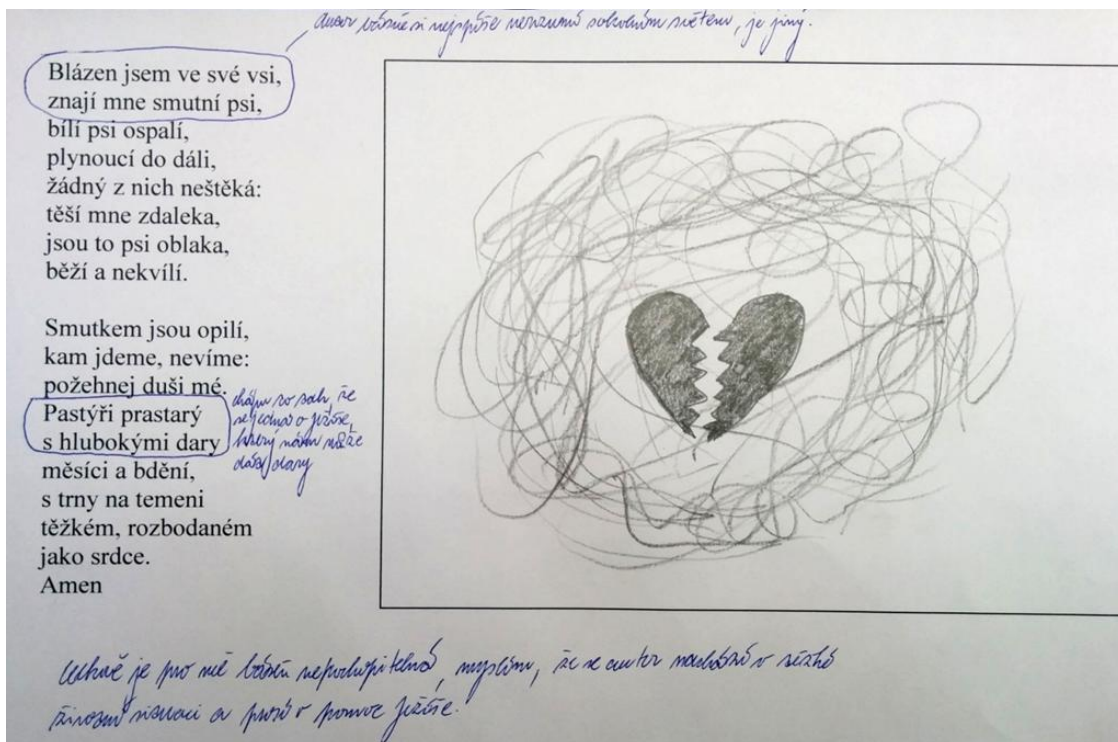 autor básně si nejspíše nerozumí s okolním světem, je jiný.
Blázen jsem ve své vsi,
znají mne smutní psi,
bílí psi ospalí,
plynoucí do dáli,
žádný z nich neštěká:
těší mne zdaleka,
jsou to psi oblaka,
běží a nekvílí.
Smutkem jsou opilí,
kam jdeme, nevíme:
požehnej duši mé.
Pastýři prastarý
s hlubokými dary
měsíci a bdění,
s trny na temeni
těžkém, rozbodaném
jako srdce.
Amen
chápu to tak, že
se jedná o Ježíše,
který nám může
dát dary
je pro mě báseň nepochopitelná, myslím, že se autor nachází v těžké
životní situaci a prosí o pomoc Ježíše.